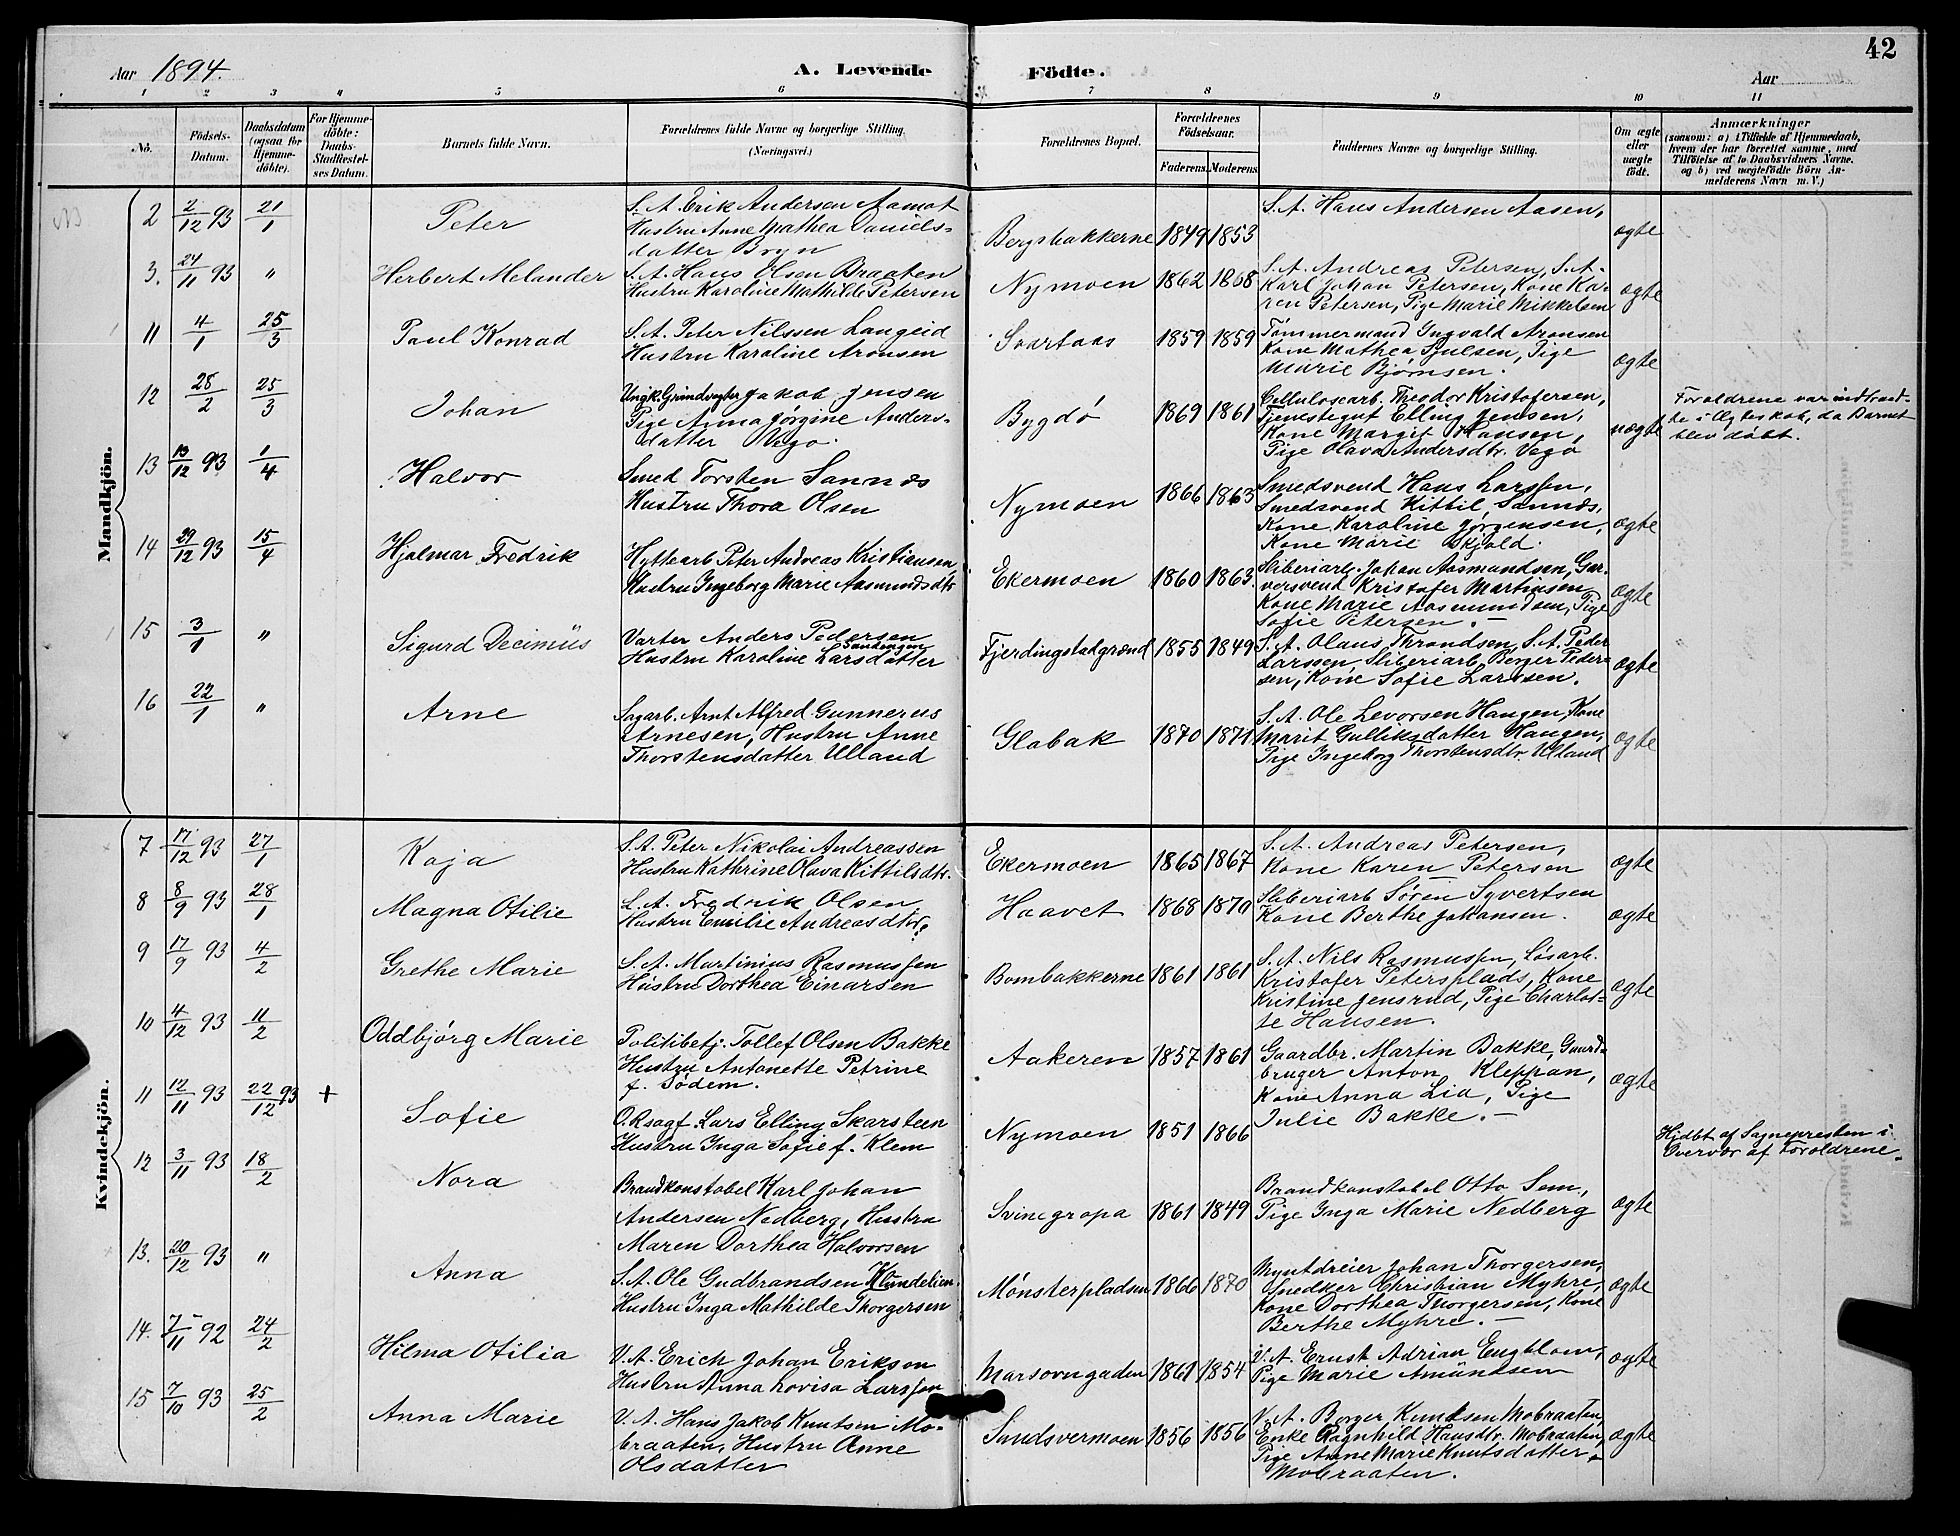 42
Aar 1894.
A. Levende Födte.
Aar
1 2 3 4 5 6 7 8 9 10 11
No.
Födsels-Datum.
Daabsdatum (ogsaa for Hjemme-döbte).
For Hjemme-döbte: Daabs-Stadfæstel-ses Datum.
Barnets fulde Navn.
Forældrenes fulde Navne og borgerlige Stilling.
(Næringsvei.)
Forældrenes Bopæl.
Forældrenes Födselsaar.
Faderens. Moderens.
Faddernes Navne og borgerlige Stilling.
Om ægte eller uægte födt.
Anmærkninger
(saasom: a) i Tilfælde af Hjemmedaab,
hvem der har forrettet samme, med
Tilföielse af to Daabsvidners Navne.
og b) ved uægtefödte Börn An-
melderens Navn m. V.)
Mandkjön.
2 2/12 93 21/1 Peter
S. A. Erik Andersen Aamot
Hustru Anne Mathea Daniels-
datter Bryn
Bergsbakkerne 1849 1853
S. A. Hans Andersen Aasen,
ægte
3. 24/11 93 " Herbert Melander
S. A. Hans Olsen Braaten
Hustru Karoline Mathilde Petersen
Nymoen 1862 1868
S. A. Andreas Petersen, S. A.
Karl Johan Petersen, Kone Ka-
ren Petersen, Pige Marie Mikkelsen
ægte
11 4/1 25/3 Paul Konrad
S. A. Peter Nilssen Langeid
Hustru Karoline Aronsen
Svartaas 1859 1859
Tömmermand Ingvald Aronsen
Kone Mathea Sjulsen, Pige
Marie Bjørnsen.
ægte
12 28/2 25/3 Johan
Ungk. Grindvogter Jakob Jensen
Pige Anna Jörgine Anders-
datter Vego.
Bygdö 1869 1861
Cellulosearb. Theodor Kristofersen,
Tjenestegut Elling Jensen,
Kone Margit Hansen,
Pige Olava Andersdtr. Vego
uægte
Forældrene var indtraad-
te i Ægteskab, da Barnet
blev döbt.
13 13/12 93 1/4 Halvor
Smed Torsten Sannes
Hustru Thora Olsen
Nymoen 1866 1863
Smedsvend Hans Larssen,
Smedsvend Kittil Sannes,
Kone Karoline Jörgensen,
Kone Marie Skjold.
ægte
14 29/12 93 15/4 Hjalmar Fredrik
Hyttearb Peter Andreas Kristiansen
Hustru Ingeborg Marie Aasmundsdtr
Ekermoen 1860 1863.
Sliberiarb. Johan Aasmundsen, Gar-
versvend Kristofer Martinsen
Kone Marie Aasmundsen, Pige
Sofie Petersen. —
ægte
15 3/1 " Sigurd Decimüs
Varter Anders Pedersen
Hustru Karoline Larsdatter
Fjerdingstadgrænd 1855 1849
S. A. Olaus Throndsen, S. A. Peder
Larssen, Sliberiarb. Berger Peder-
sen, Kone Sofie Larssen.
ægte
16 22/1 " Arne
Sagarb. Arnt Alfred Gunnerus
Arnesen, Hustru Anne
Thorstensdatter Ulland
Glabak 1870 1871
S. A. Ole Levorsen Haugen, Kone
Marit Gulliksdatter Haugen,
Pige Ingeborg Thorstensdtr. Ulland
ægte
Kvindekjön.
7 17/12 93 27/1 Kaja
S. A. Peter Nikolai Andreassen
Hustru Kathrine Olava Kittilsdtr.
Ekermoen 1865 1867
S. A. Andreas Petersen,
Kone Karen Petersen
ægte
8 8/9 93 28/1 Magna Otilie
L. A. Fredrik Olsen
Hustru Emilie Andreasdtr.
Haavet 1868 1870
Sliberiarb Sören Syvertsen
Kone Berthe Johansen.
ægte
9 17/9 93 4/2 Grethe Marie
S. A. Martinius Rasmussen
Hustru Dorthea Einarsen
Bombakkerne 1861 1861
S. A. Nils Rasmussen, Lösarb.
Kristofer Petersplads, Kone
Kristine Jensrud, Pige Charlot-
te Hansen.
ægte
10 4/12 93 11/2 Oddbjörg Marie
Politibetj. Tollef Olsen Bakke
Hustru Antonette Petrine
f. Södem.
Aakeren 1857 1861
Gaardbr. Martin Bakke, Gaard-
bruger Anton Kleppan,
Kone Anna Lia, Pige
Julie Bakke. —
ægte
11 12/11 93 22/12 93 + Sofie
O.Rsagf. Lars Elling Skarsteen
Hustru Inga Sofie f. Klem
Nymoen 1851 1866
Hjdbt af Sognepresten i
Overvær af Forældrene.
12 3/11 93 18/2 Nora
Brandkonstabel Karl Johan
Andersen Nedberg, Hustru
Maren Dorthea Halvorsen
Svinegropa 1861 1849
Brandkonstabel Otto Sem,
Pige Inga Marie Nedberg
ægte
13. 20/12 93 " Anna
S. A. Ole Gudbrandsen
Hustru Inga Mathilde Thorgersen
Mönsterpladsen 1866 1870
Myntdreier Johan Thorgersen,
Snedker Christian Myhre,
Kone Dorthea Thorgersen, Kone
Berthe Myhre. —
ægte
14. 7/11 92 24/2 Hilma Otilia
V. A. Erich Johan Erikson
Hustru Anna Lovisa Larssen
Marsovngaden 1861 1854
V. A. Ernst Adrian Engblom,
Pige Marie Amündsen
ægte
15 7/10 93 25/2 Anna Marie
V. A. Hans Jakob Knutsen Mo-
braaten, Hustru Anne
Olsdatter
Sundsvermoen 1856 1856
V. A. Borger Knudsen Mobraaten,
Enke Ragnhild Hansdtr. Mobraaten,
Pige Anne Marie Knutsdatter
Mobraaten.
ægte